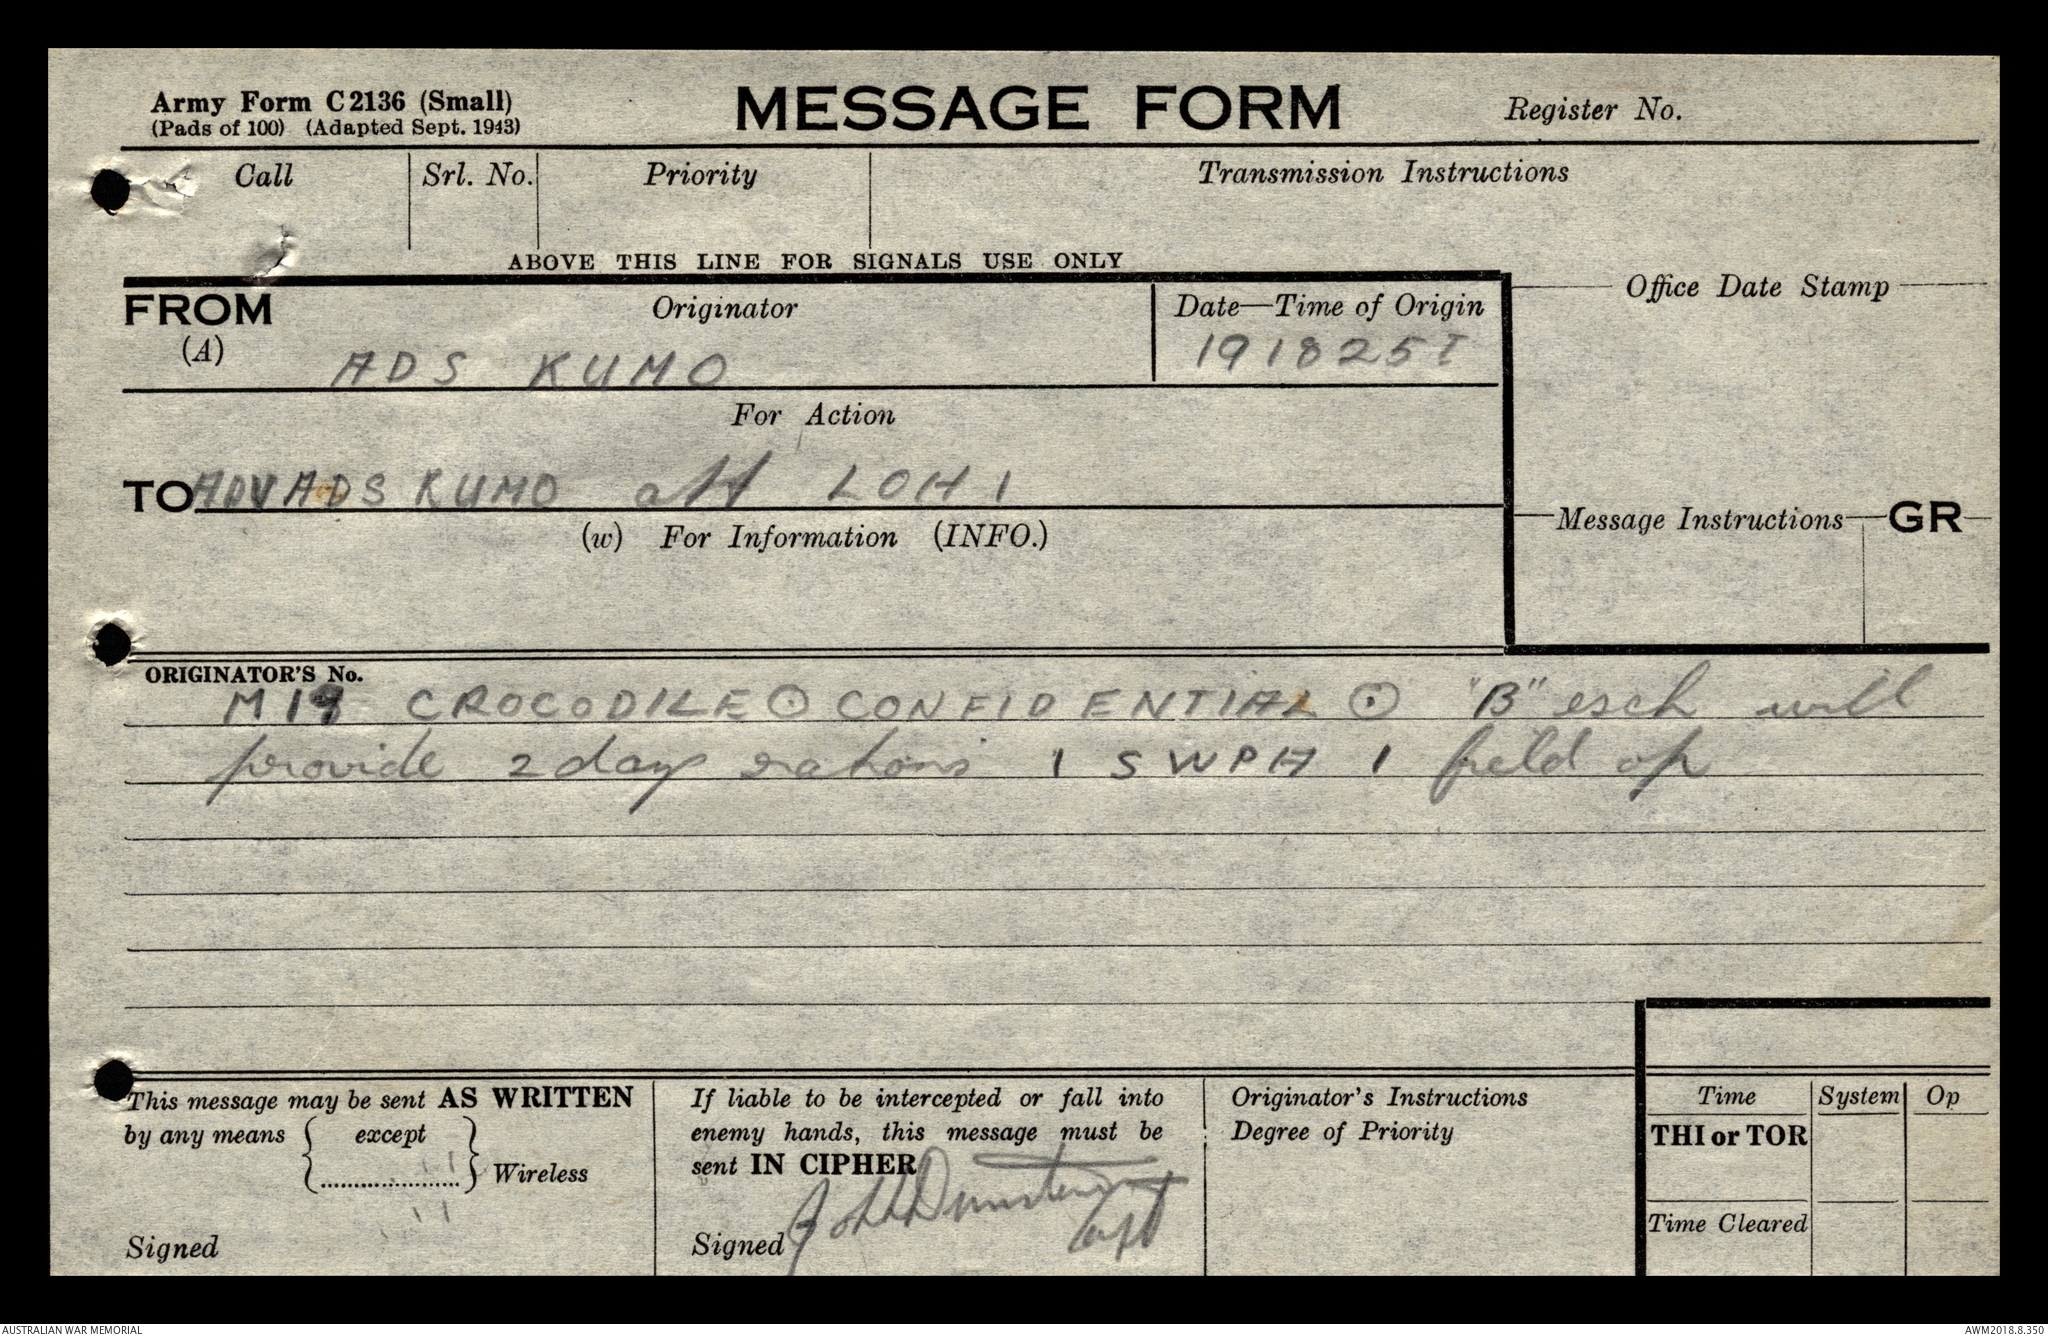 Army Form C2136 (Small)
(Pads of 100) (Adapted Sept. 1943)
MESSAGE FORM
Register No.
Call
Srl. No.
Priority
Transmission Instructions
ABOVE THIS LINE FOR SIGNALS USE ONLY
FROM
(A)
Originator
ADS KUMO
Date—Time of Origin
191825I
Office Date Stamp
For Action
TO ADV ADS KUMO att LOHI
(w) For Information (INFO.)
Message Instructions GR
ORIGINATOR'S No.
M19 CROCODILE ⊙ CONFIDENTIAL ⊙ "B" esch will
provide 2 days rations 1 SWPH 1 field op
This message may be sent AS WRITTEN
by any means { except
.....................} Wireless
Signed
If liable to be intercepted or fall into
enemy hands, this message must be
sent IN CIPHER
Signed
Capt
Originator's Instructions
Degree of Priority
Time System Op
THI or TOR
Time Cleared
AUSTRALIAN WAR MEMORIAL
AWM2018.8.350